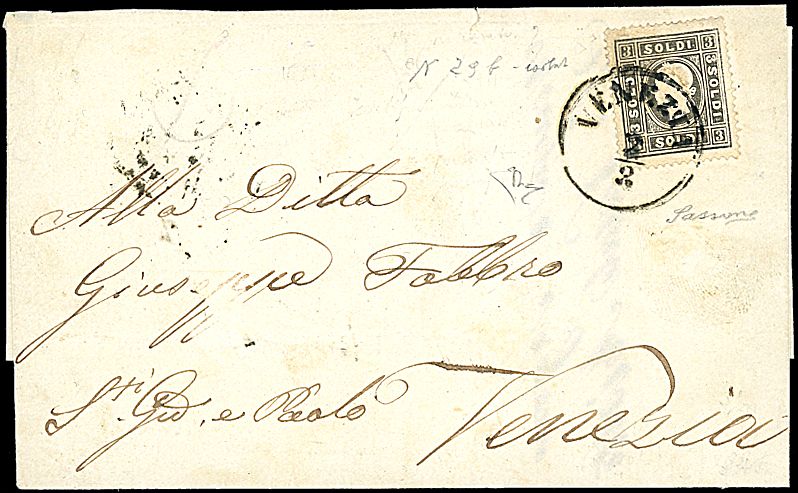 N 29 b - isolat
3 SOLDI 3
3 SOLDI
3 SOLDI
3 SOLDI 3
VENEZIA
Sassone
Alla Ditta
Giuseppe Fabbro
S.ti Gio. e Paolo Venezia